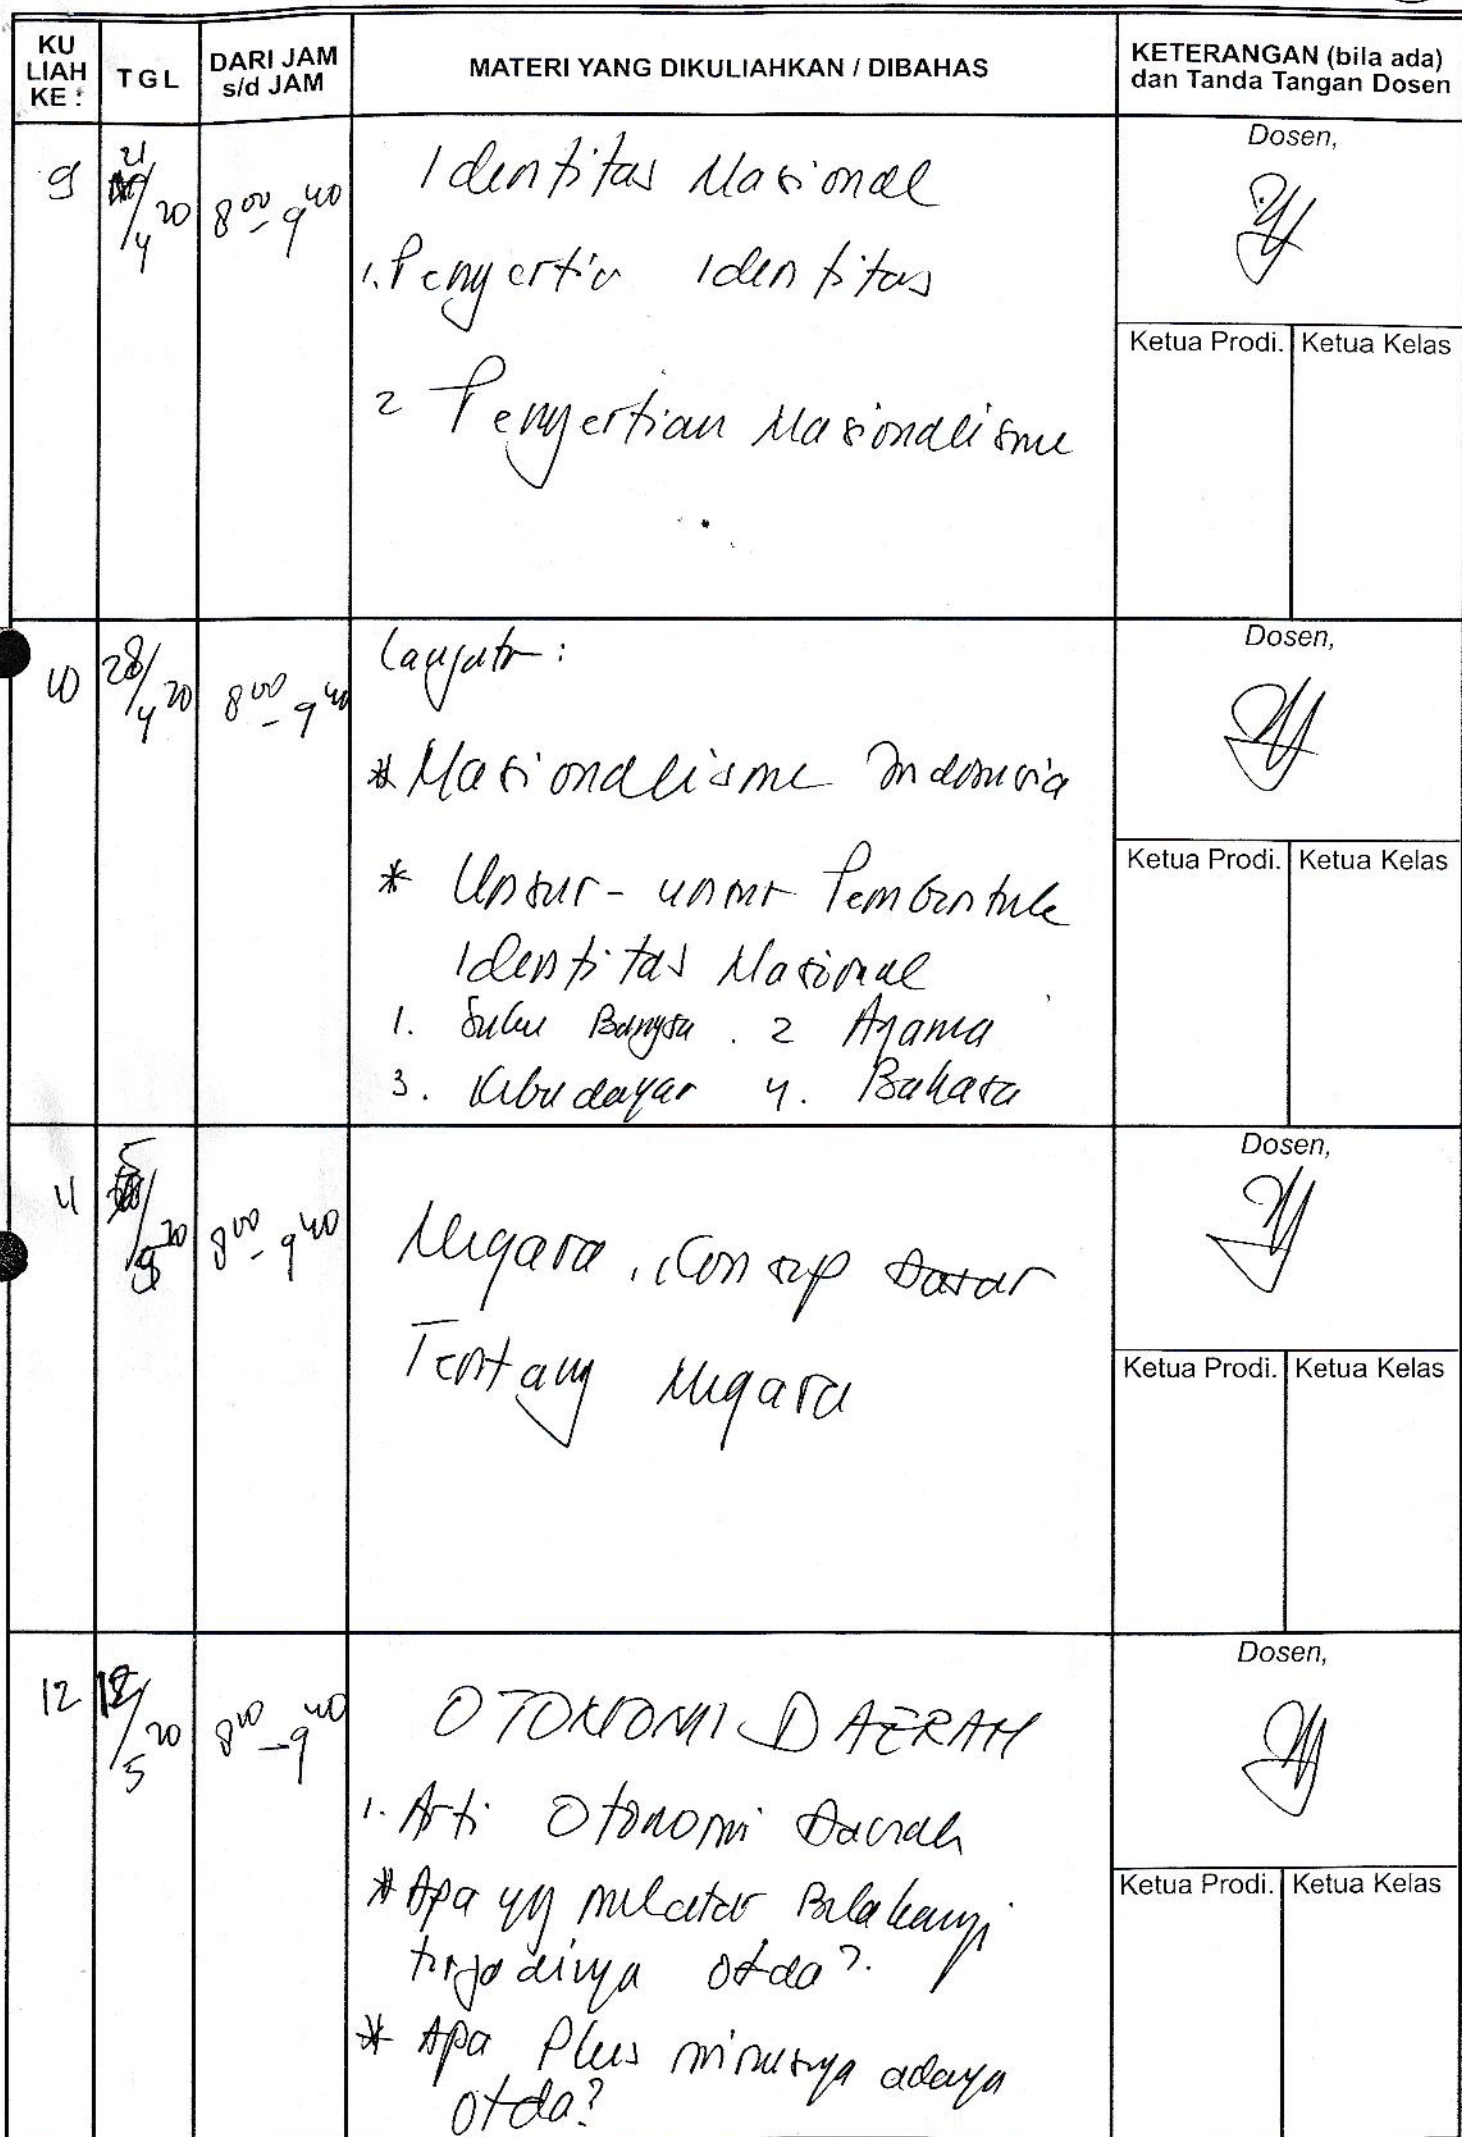 KU LIAH KE :
TGL
DARI JAM s/d JAM
MATERI YANG DIKULIAHKAN / DIBAHAS
KETERANGAN (bila ada) dan Tanda Tangan Dosen
9
21/4 20
8 00 - 9 40
Identitas Nasional
1. Pengertia Identitas
2 Pengertian Nasionalisme
Dosen,
Ketua Prodi. Ketua Kelas
10
28/4 20
8 00 - 9 40
Lanjutn :
* Nasionalisme Indonesia
* Unsur - unsur Pembentuk
Identitas Nasional
1. Suku Bangsa . 2 Agama
3. Kebudayan 4. Bahasa
Dosen,
Ketua Prodi. Ketua Kelas
11
5/5 20
8 00 - 9 40
Negara, Konsep Dasar
Tentang Negara
Dosen,
Ketua Prodi. Ketua Kelas
12
12/5 20
8 00 - 9 40
OTONOMI DAERAH
1. Arti Otonomi Daerah
* Apa yg melatar Belakangi
terjadinya otda?.
* Apa Plus minusnya adanya
otda?
Dosen,
Ketua Prodi. Ketua Kelas